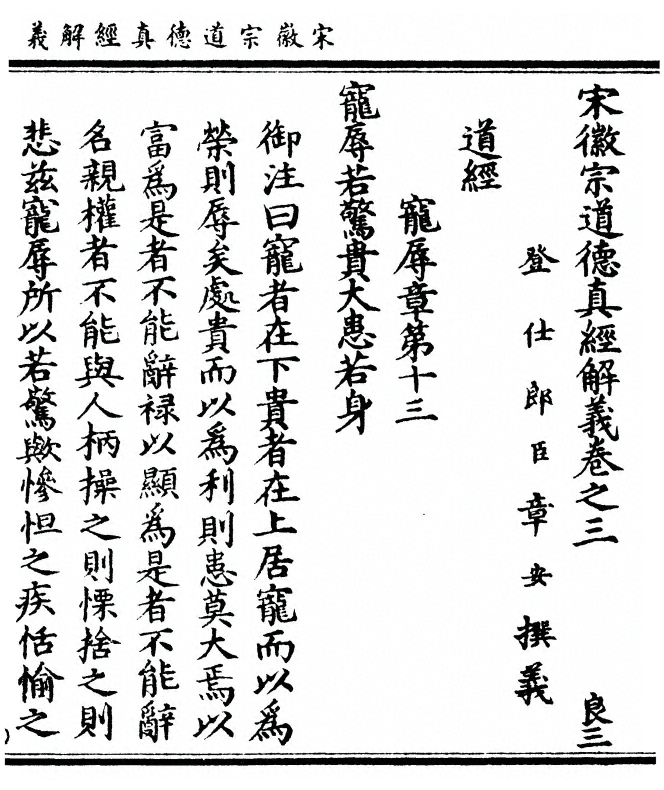 宋徽宗道德真經解義
宋徽宗道德真經解義卷之三
良三
登仕郎臣章安撰義
道經
寵辱章第十三
寵辱若驚貴大患若身
御注曰寵者在下貴者在上居寵而以為
榮則辱矣處貴而以為利則患莫大焉以
富為是者不能辭祿以顯為是者不能辭
名親權者不能與人柄操之則慄捨之則
悲茲寵辱所以若驚歟慘怛之疾恬愉之